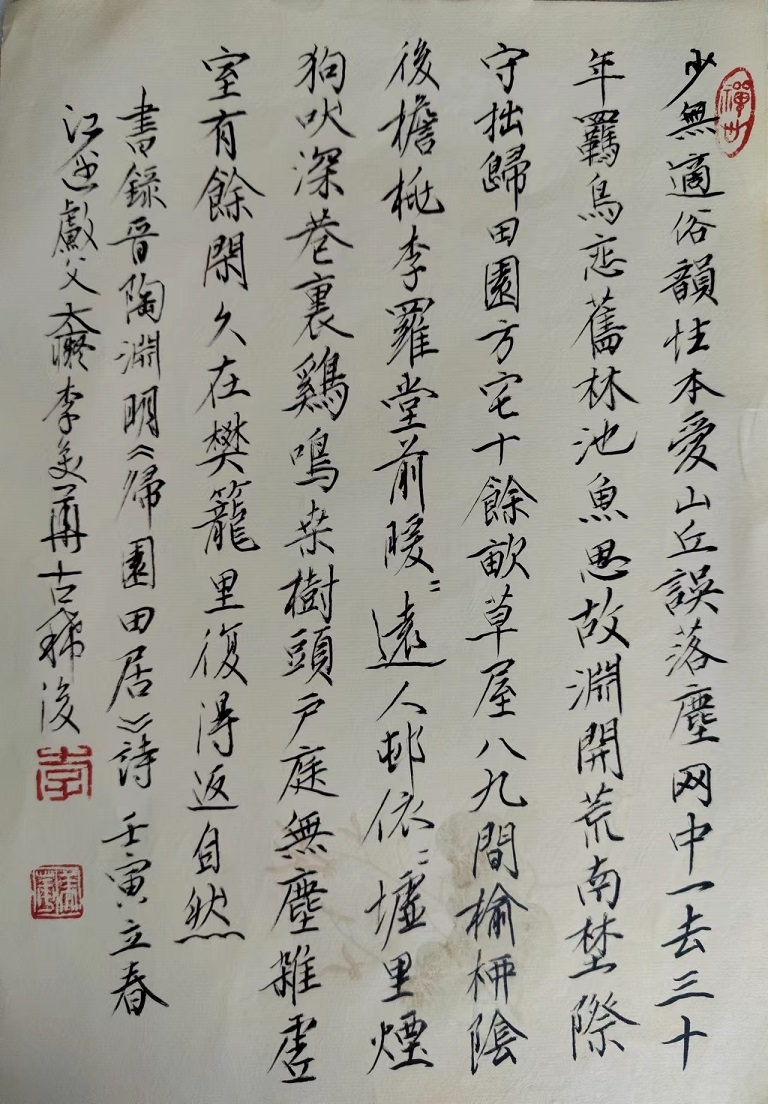 少無適俗韻性本愛山丘誤落塵网中一去三十
年羈鳥恋舊林池魚思故淵開荒南埜際
守拙歸田園方宅十餘畝草屋八九間榆柳陰
後檐桃李羅堂前暖〻遠人邨依〻墟里煙
狗吠深巷裏鷄鳴桒樹頭户庭無塵雜虛
室有餘閑久在樊籠里復得返自然
書錄晉陶淵明《歸園田居》詩 壬寅立春
江 父 李 古稀後
李